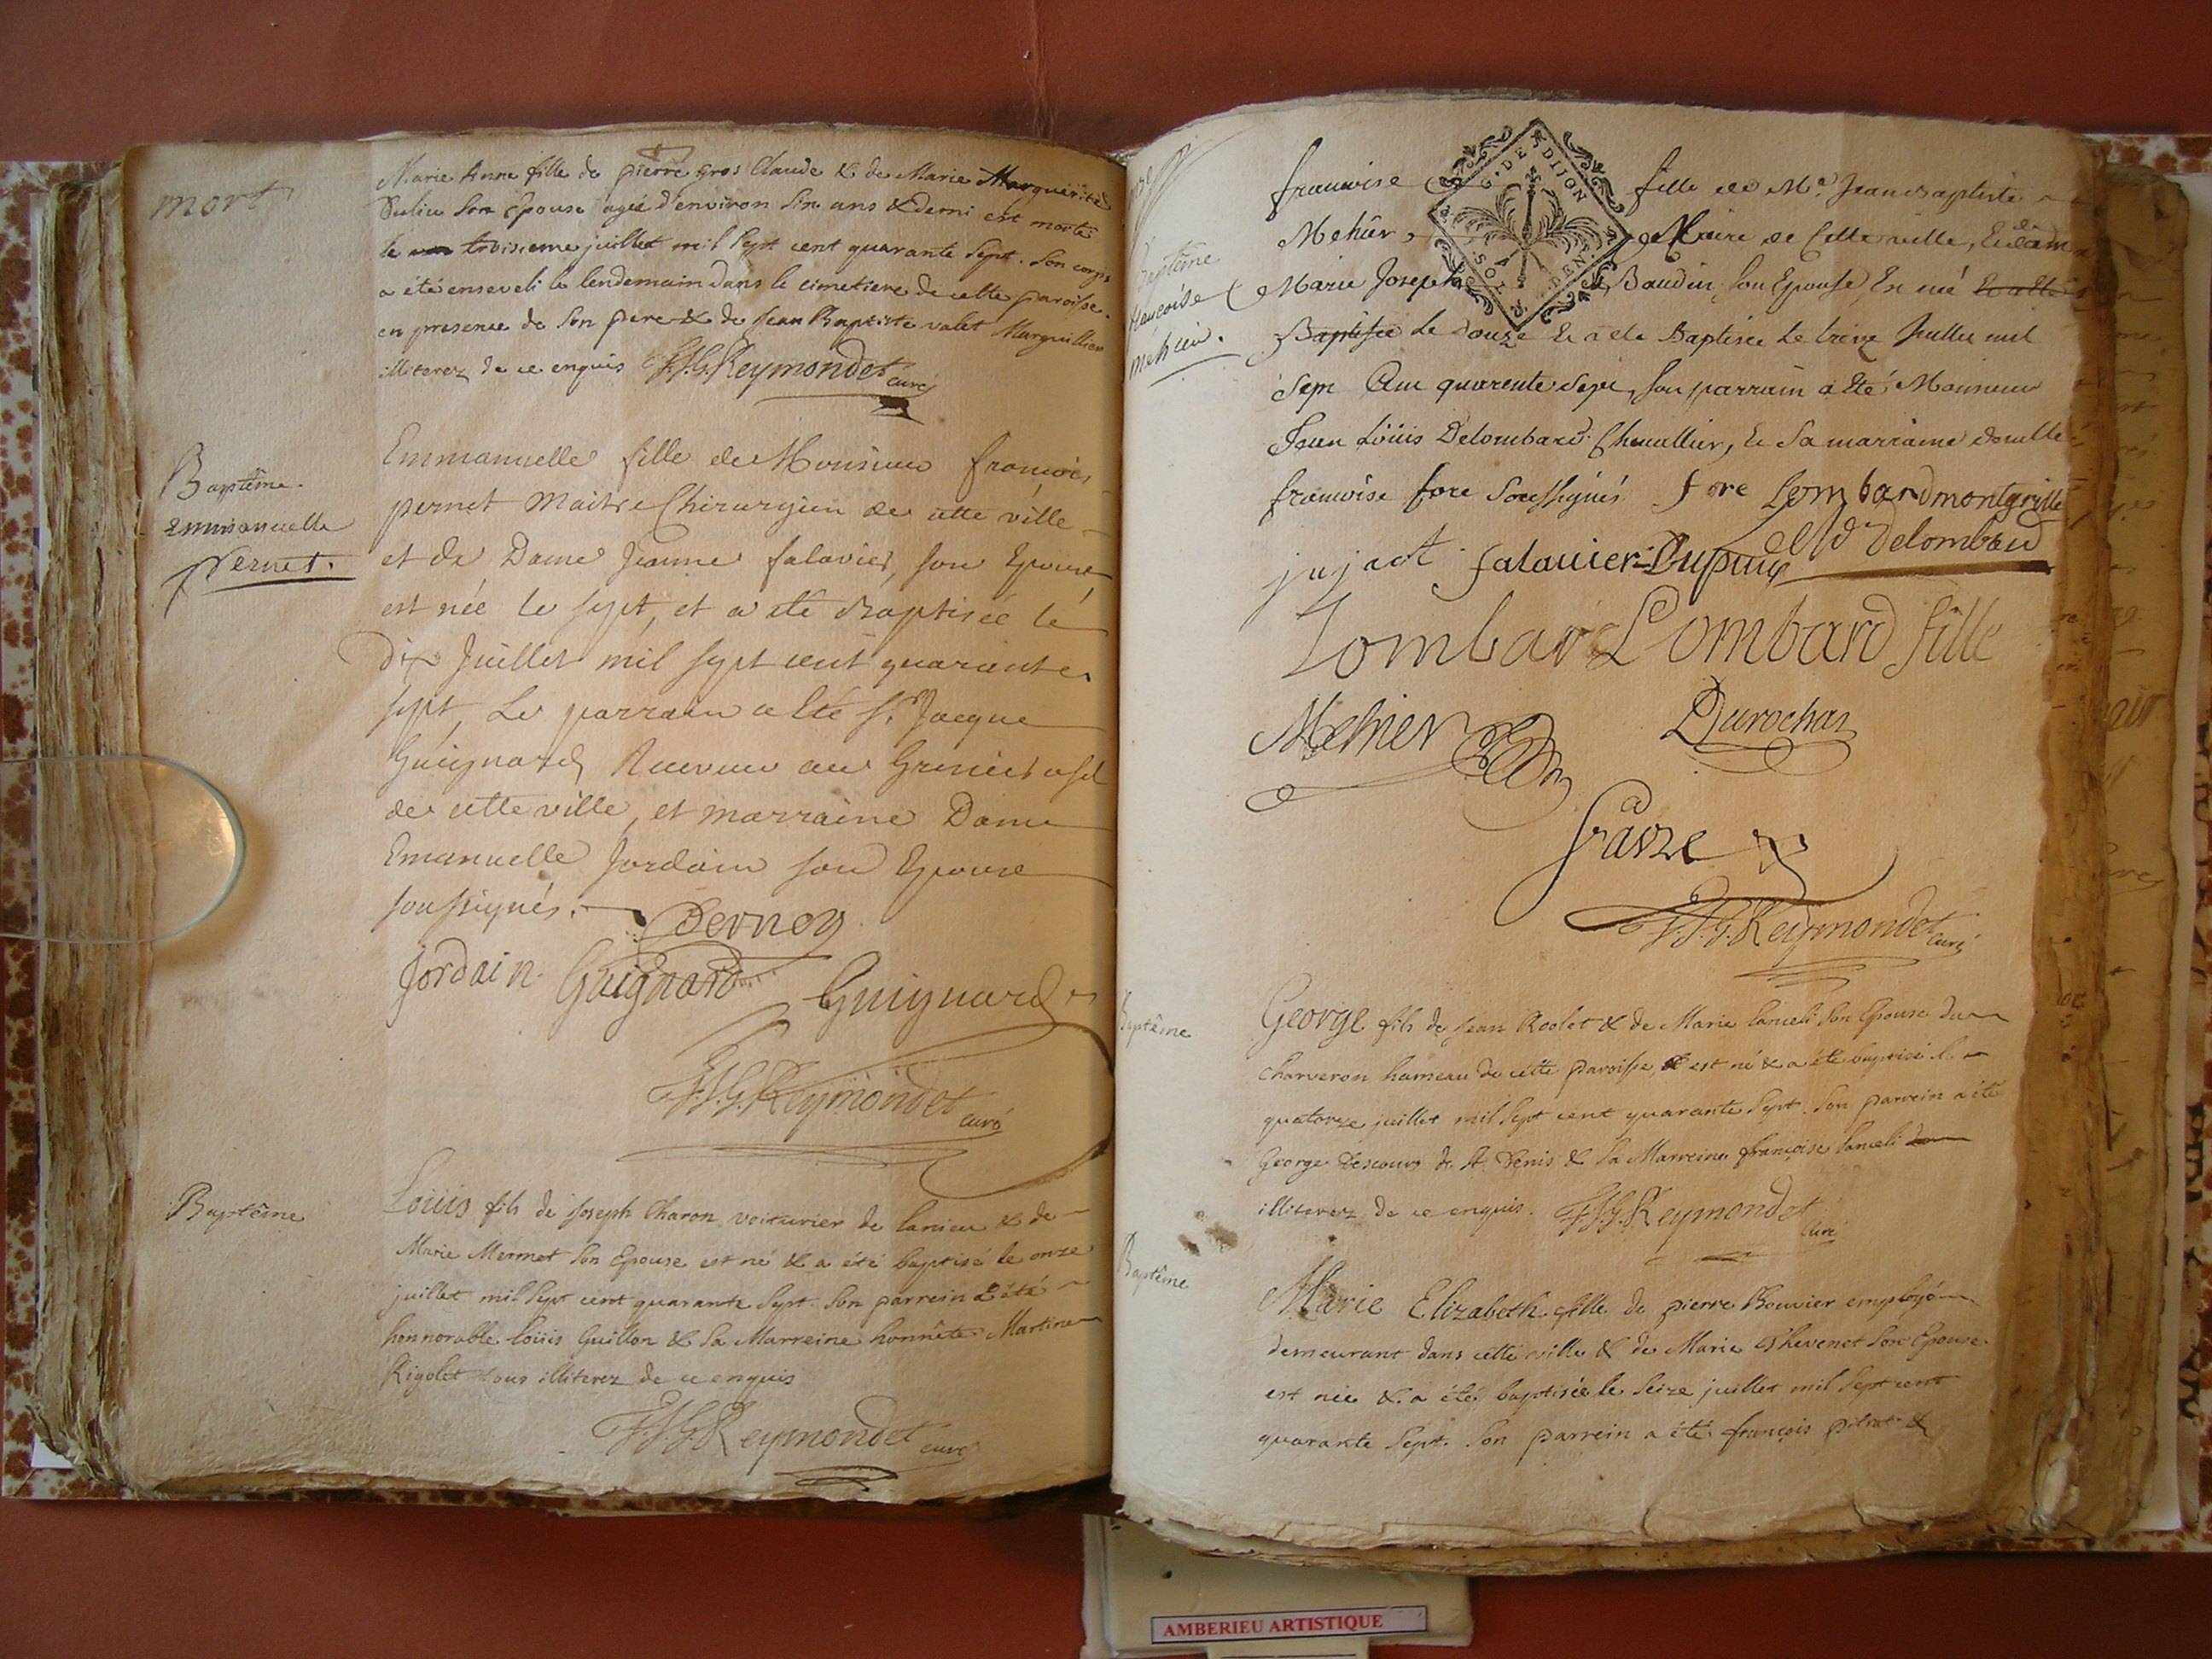 mort
Marie Anne fille de pierre gros Claude & de Marie Marguerite
Duliu son épouse agée d'environ six ans & demi est morte
le troisieme juillet mil sept cent quarante sept. Son corps
a été enseveli le lendemain dans le cimetiere de cette paroisse.
en presence de son pere & de Jean Baptiste valet Marguillier
illiterez de ce enquis F.J.G. Reymondet curé
Baptême.
Emmanuelle
Pernet.
Emmanuelle fille de Monsieur francois
pernet Maitre Chirurgien de cette ville
et de Dame Jeanne falavier, son Epouse
est née le sept, et a été Baptisée le
dix Juillet mil sept cent quarante
sept, Le parrain a Eté Sr. Jacque
Guignard Receveur au Grenier a sel
de cette ville, et marraine Dame
Emanuelle Jordain son Epouse
soussignés.
Pernet
Jordain Guignard Guignard
F.J.G. Reymondet curé
Baptême
Loüis fils de joseph Charon voiturier de lanieu & de
Marie Mermet son Epouse est né & a été baptisé le onze
juillet mil sept cent quarante sept. Son parrein a été
honnorable loüis Guillon & la Marreine honnête Martine
Rigolet tous illiterez de ce enquis
F.J.G. Reymondet curé
Baptême
francoise
mehier.
francoise fille de Me. Jean Baptiste
G. DE DIJON
SOLS DEN
Mehier, Maire de Cette ville, Et de dam
Marie Joseph Baudin, son Epouse, En né
Baptisée Le douze Et a ete Baptisée Le treize Juillet mil
Sept Cent quarente Sept, son parrain a Eté Monsieur
Jean Loüis Delombard Chevallier, Et Sa marraine doulle
francoise fore Soussignés fore Lombardmontgrille
jujact falavier-Dupuy Delombard
Lombard Lombard fille
Mehier Durochat
favre
F.J.G. Reymondet curé
Baptême
George fils de jean Rolet & de Marie lanceli son Epouse du
charveron hameau de cette paroisse, est né & a été baptisé le
quatorze juillet mil sept cent quarante sept. Son parrein a été
George Descours de St. Denis & la Marreine françoise lanceli
illiterez de ce enquis. F.J.G. Reymondet
curé
Baptême
Marie Elizabeth fille de pierre Bouvier employé
demeurant dans cette ville & de Marie Thevenet son Epouse
est née & a été baptisée le seize juillet mil sept cent
quarante sept. Son parrein a été françois pitrat &
AMBERIEU ARTISTIQUE